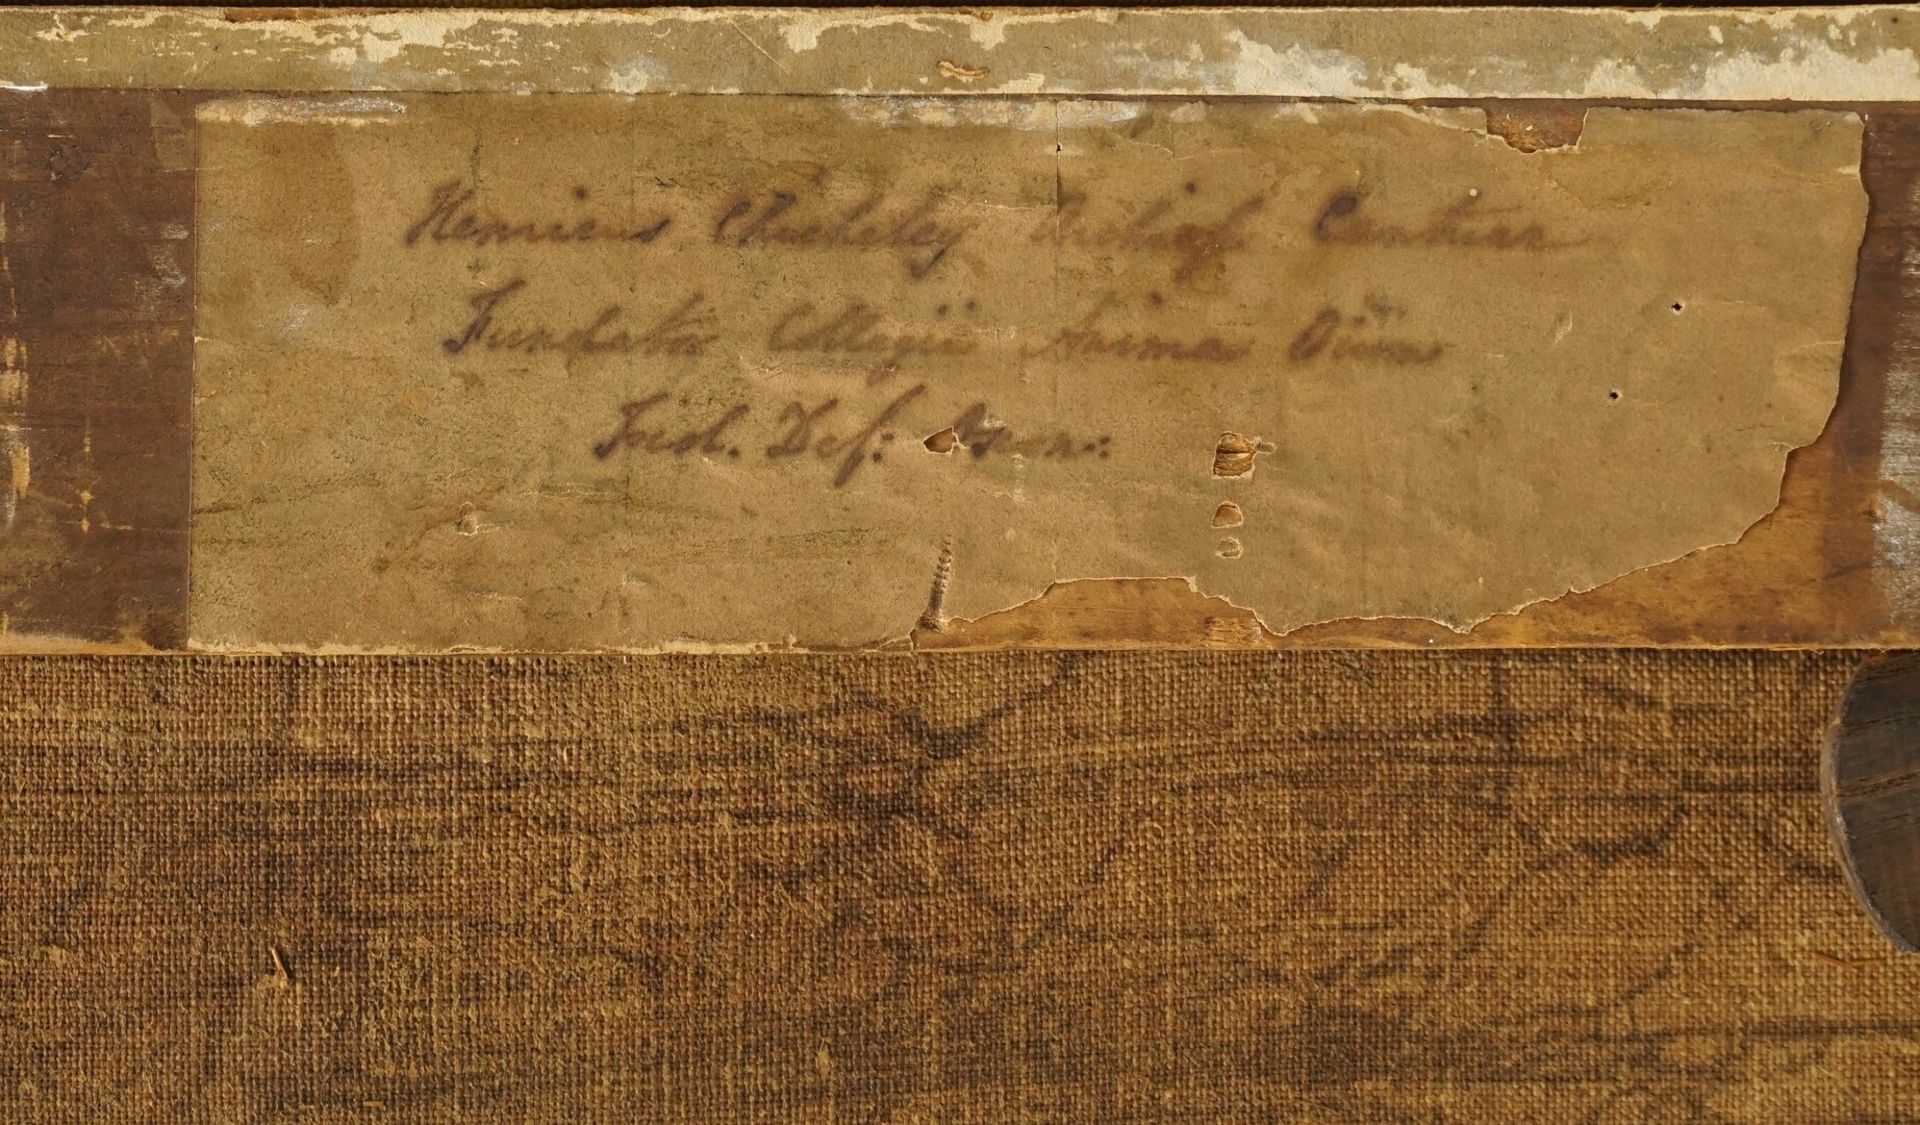 Henricus Chicheley Archiep. Cantuar
Fundator Collegii Animar Omn
Fid. Def: Oxon: